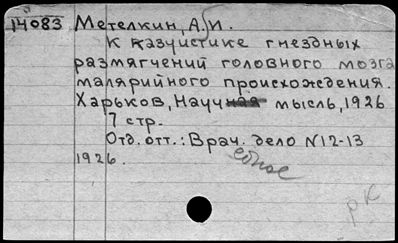 14083 Метелкин, А. И.
К казуистике гнездных
размягчений головного мозга
малярийного происхождения.
Харьков, Научная мысль, 1926
7 стр.
Отд. отт.: Врач. дело N12-13
1926.
рк